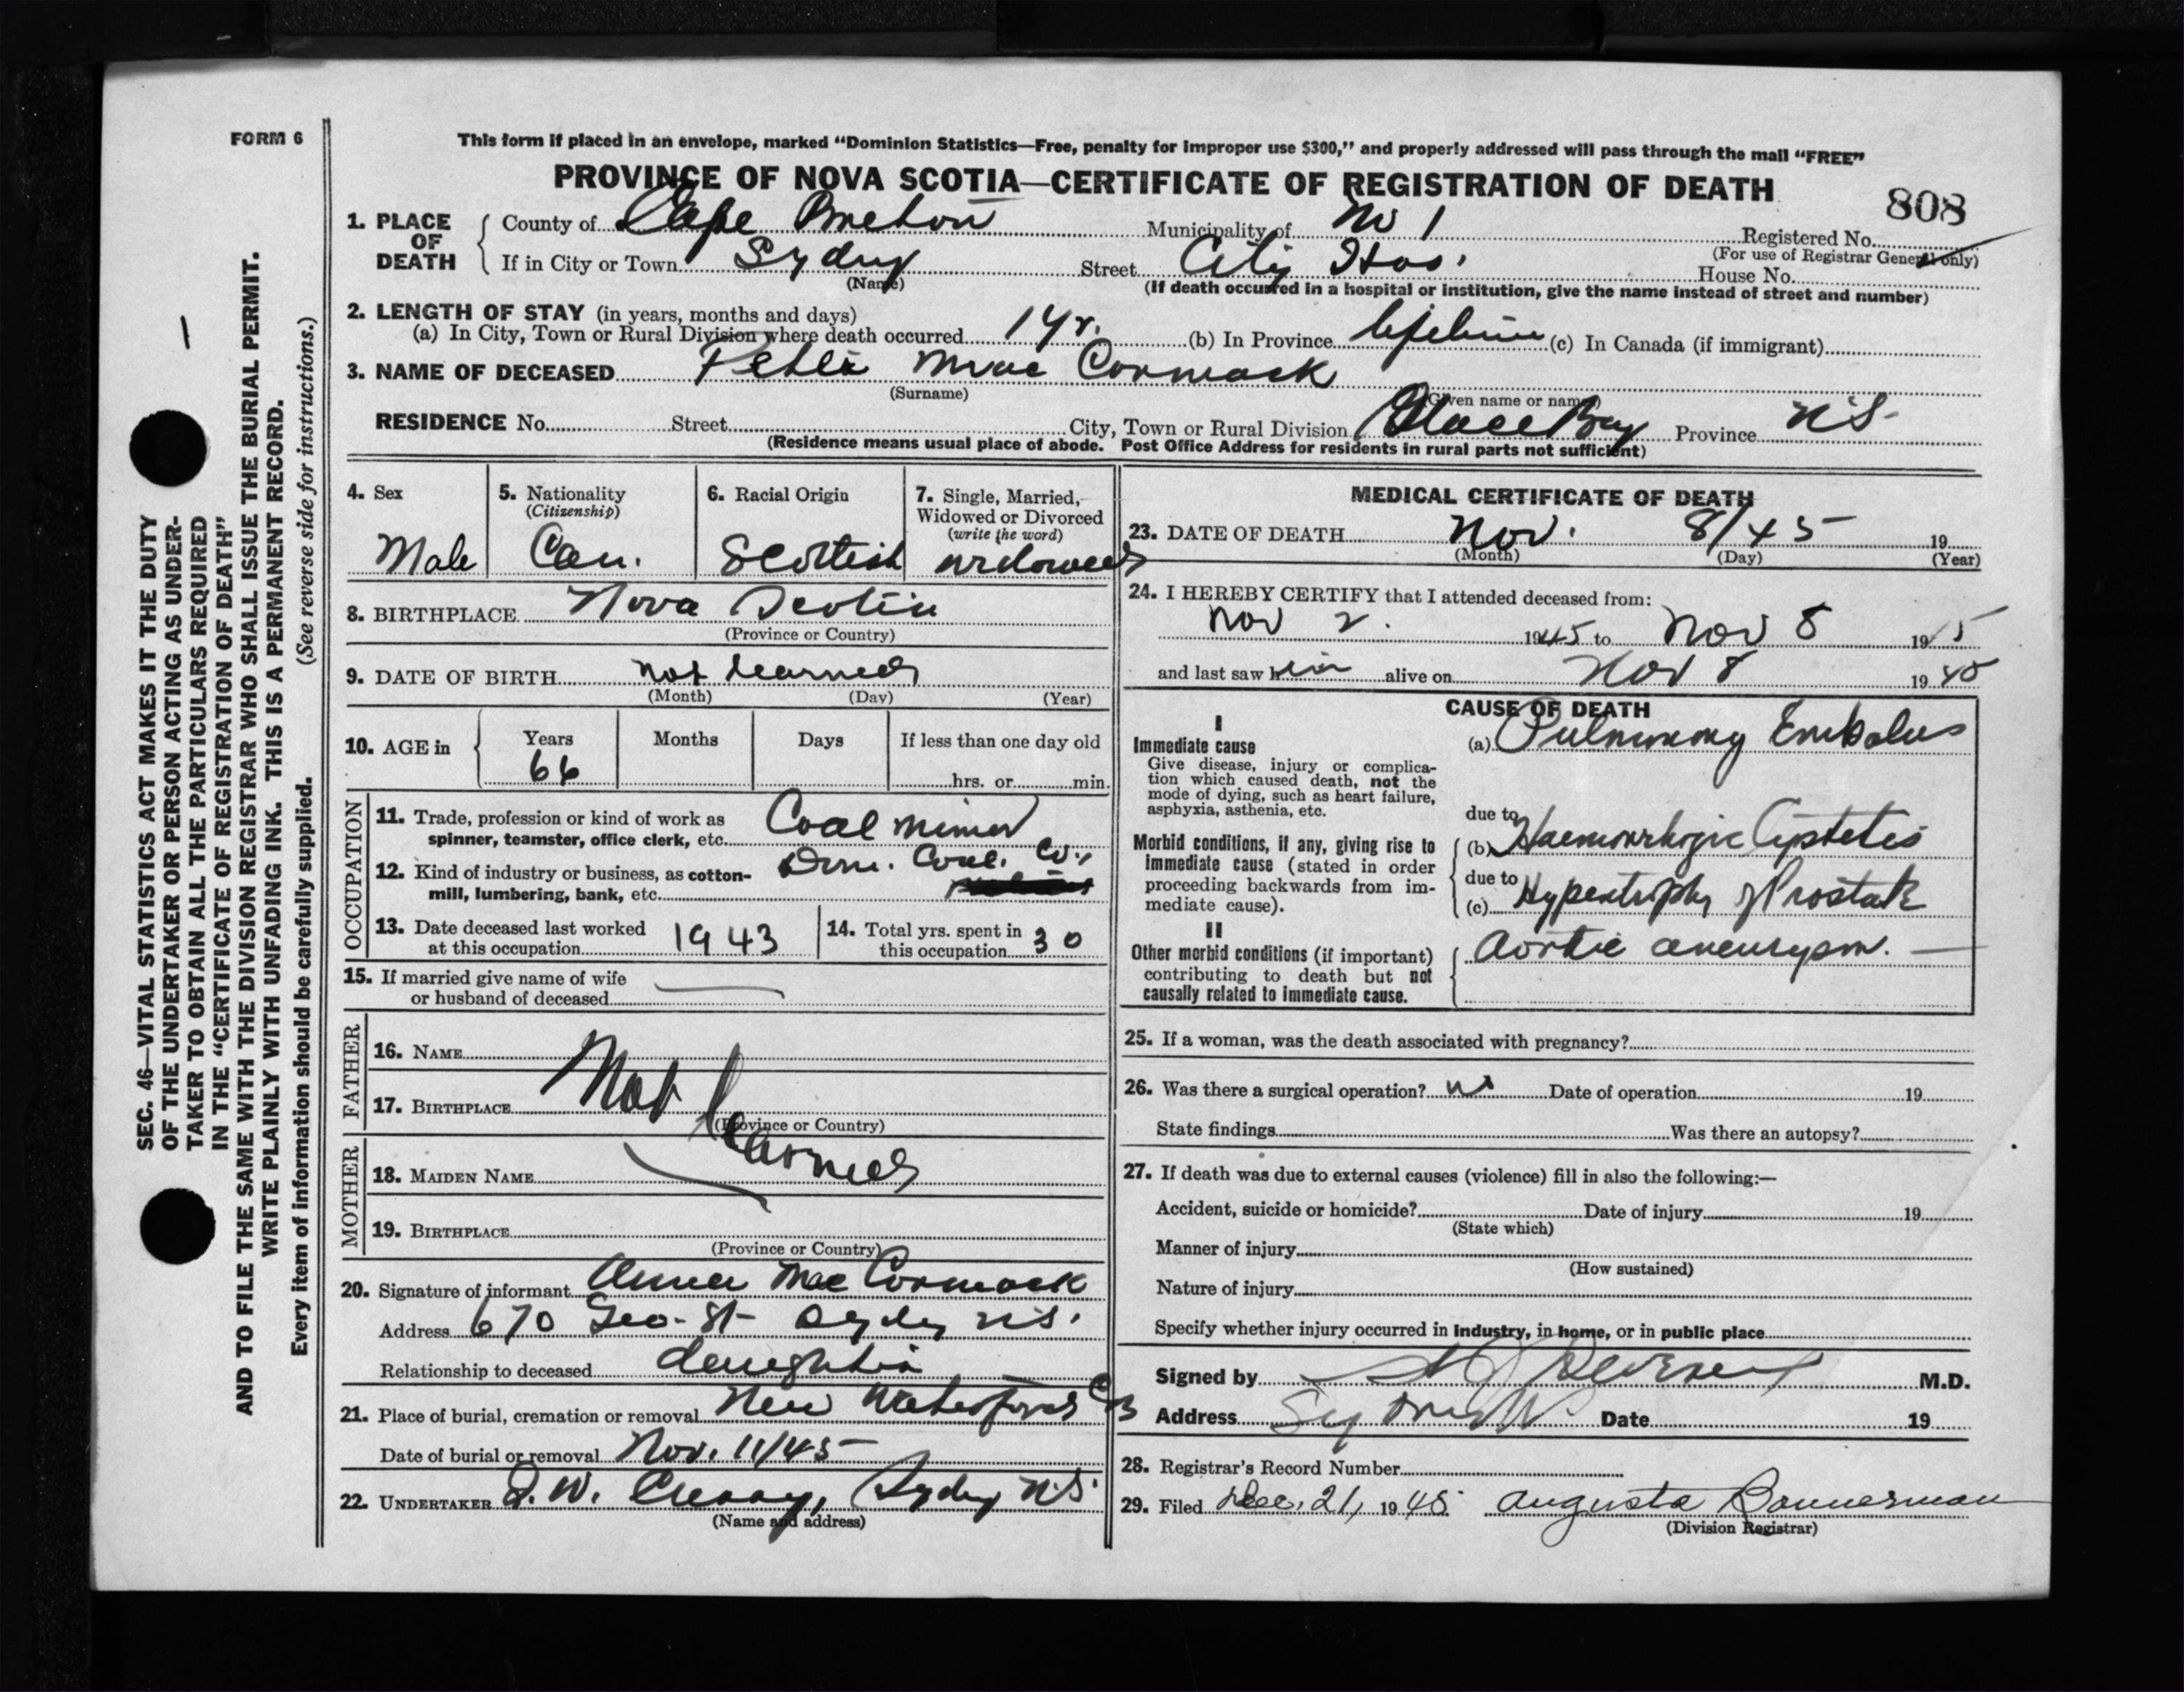 FORM 6
This form if placed in an envelope, marked “Dominion Statistics—Free, penalty for improper use $300,” and properly addressed will pass through the mail “FREE”
PROVINCE OF NOVA SCOTIA—CERTIFICATE OF REGISTRATION OF DEATH
808
1. PLACE OF DEATH County of Cape Breton Municipality of No 1 Registered No.
(For use of Registrar General only)
If in City or Town Sydney Street City Hos. House No.
(Name) (If death occurred in a hospital or institution, give the name instead of street and number)
2. LENGTH OF STAY (in years, months and days)
(a) In City, Town or Rural Division where death occurred 1 yr. (b) In Province Lifetime (c) In Canada (if immigrant)
3. NAME OF DECEASED Peter Mac Cormack
(Surname) (Given name or names)
RESIDENCE No. Street City, Town or Rural Division Glace Bay Province N.S.
(Residence means usual place of abode. Post Office Address for residents in rural parts not sufficient)
4. Sex Male
5. Nationality (Citizenship) Can.
6. Racial Origin Scottish
7. Single, Married, Widowed or Divorced (write the word) widowed
8. BIRTHPLACE Nova Scotia
(Province or Country)
9. DATE OF BIRTH not learned
(Month) (Day) (Year)
10. AGE in Years Months Days If less than one day old
66 hrs. or min.
OCCUPATION
11. Trade, profession or kind of work as spinner, teamster, office clerk, etc. Coal miner
12. Kind of industry or business, as cotton-mill, lumbering, bank, etc. Dom. Coal. Co.,
13. Date deceased last worked at this occupation 1943
14. Total yrs. spent in this occupation 30
15. If married give name of wife or husband of deceased
FATHER
16. NAME Not learned
17. BIRTHPLACE
(Province or Country)
MOTHER
18. MAIDEN NAME
19. BIRTHPLACE
(Province or Country)
20. Signature of informant Anna Mac Cormack
Address 670 Geo. St Sydney N.S.
Relationship to deceased daughter
21. Place of burial, cremation or removal New Waterford CB
Date of burial or removal Nov. 11/45
22. UNDERTAKER Sydney N.S.
(Name and address)
MEDICAL CERTIFICATE OF DEATH
23. DATE OF DEATH Nov. 8/45 19
(Month) (Day) (Year)
24. I HEREBY CERTIFY that I attended deceased from:
Nov 2. 1945 to Nov 8 1945
and last saw him alive on Nov 8 1945
CAUSE OF DEATH
I
Immediate cause (a) Pulmonary Embolus
Give disease, injury or complica-
tion which caused death, not the
mode of dying, such as heart failure,
asphyxia, asthenia, etc.
due to
Morbid conditions, if any, giving rise to
immediate cause (stated in order
proceeding backwards from im-
mediate cause).
(b) Haemorrhagic Cystitis
due to
(c) Hypertrophy of Prostate
II
Other morbid conditions (if important)
contributing to death but not
causally related to immediate cause.
Aortic aneurysm.
25. If a woman, was the death associated with pregnancy?
26. Was there a surgical operation? no Date of operation 19
State findings Was there an autopsy?
27. If death was due to external causes (violence) fill in also the following:—
Accident, suicide or homicide? Date of injury 19
(State which)
Manner of injury
(How sustained)
Nature of injury
Specify whether injury occurred in industry, in home, or in public place
Signed by M.D.
Address Sydney Date 19
28. Registrar's Record Number
29. Filed Dec. 21, 1945 Augusta Bannerman
(Division Registrar)
SEC. 46—VITAL STATISTICS ACT MAKES IT THE DUTY
OF THE UNDERTAKER OR PERSON ACTING AS UNDER-
TAKER TO OBTAIN ALL THE PARTICULARS REQUIRED
IN THE “CERTIFICATE OF REGISTRATION OF DEATH”
AND TO FILE THE SAME WITH THE DIVISION REGISTRAR WHO SHALL ISSUE THE BURIAL PERMIT.
WRITE PLAINLY WITH UNFADING INK. THIS IS A PERMANENT RECORD.
Every item of information should be carefully supplied. (See reverse side for instructions.)